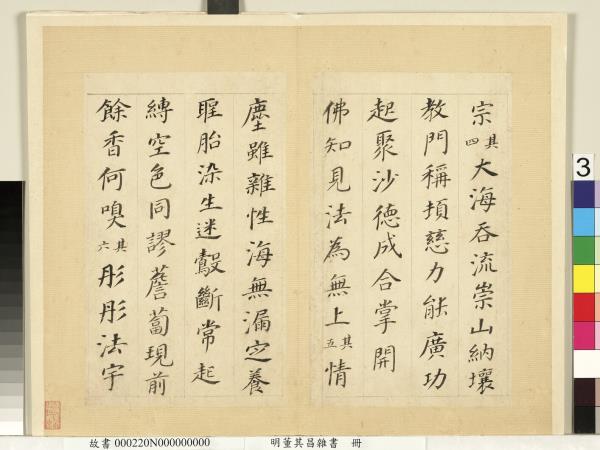 宗其四大海吞流崇山納壤
教門稱頓慈力能廣功
起聚沙德成合掌開
佛知見法為無上其五情
塵雖雜性海無漏定養
聖胎染生迷鷇斷常起
縛空色同謬薝蔔現前
餘香何嗅其六彤彤法宇
3
故書 000220N000000000 明董其昌雜書 冊